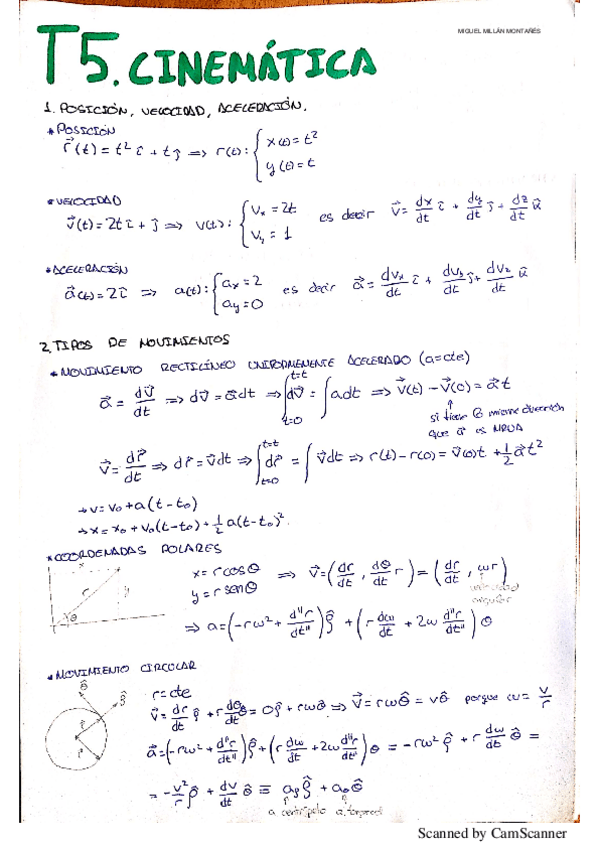 MIGUEL MILLÁN MONTAÑÉS
T5. CINEMÁTICA
1. POSICIÓN, VELOCIDAD, ACELERACIÓN.
* POSICIÓN
r⃗(t) = t² î + t ĵ ⇒ r(t): { x(t) = t²
y(t) = t
* VELOCIDAD
v⃗(t) = 2t î + ĵ ⇒ v(t): { Vx = 2t
Vy = 1
es decir v⃗ = dx/dt î + dy/dt ĵ + dz/dt k̂
* ACELERACIÓN
a⃗(t) = 2î ⇒ a(t): { ax = 2
ay = 0
es decir a⃗ = dvx/dt î + dvy/dt ĵ + dvz/dt k̂
2. TIPOS DE MOVIMIENTOS
* MOVIMIENTO RECTILÍNEO UNIFORMEMENTE ACELERADO (a = cte)
a⃗ = dv⃗/dt ⇒ dv⃗ = a⃗ dt ⇒ ∫_{t=0}^{t=t} dv⃗ = ∫ a dt ⇒ v⃗(t) - v⃗(0) = a⃗ t
↑
si tiene la misma dirección
que a⃗ es MRUA
v⃗ = dr⃗/dt ⇒ dr⃗ = v⃗ dt ⇒ ∫_{t=0}^{t=t} dr⃗ = ∫ v⃗ dt ⇒ r(t) - r(0) = v⃗(0)t + 1/2 a⃗ t²
→ v = v₀ + a(t - t₀)
→ x = x₀ + v₀(t - t₀) + 1/2 a(t - t₀)².
* COORDENADAS POLARES
x = r cos θ
y = r sen θ
⇒ v⃗ = (dr/dt , dθ/dt r) = (dr/dt , ωr)
velocidad
angular
r
y
θ
⇒ a = (-rω² + d"r/dt") ρ̂ + (r dω/dt + 2ω d"r/dt") θ
* MOVIMIENTO CIRCULAR
θ̂
ρ̂
r⃗
r = cte
v⃗ = dr/dt ρ̂ + r dθ/dt θ̂ = 0ρ̂ + rωθ̂ ⇒ v⃗ = rωθ̂ = vθ̂ porque ω = v/r
a⃗ = (-rω² + d"r/dt") ρ̂ + (r dω/dt + 2ω dr/dt") θ = -rω² ρ̂ + r dω/dt θ̂ =
= -v²/r ρ̂ + dv/dt θ̂ ≡ aρ ρ̂ + aθ θ̂
a centrípeta a tangencial
Scanned by CamScanner